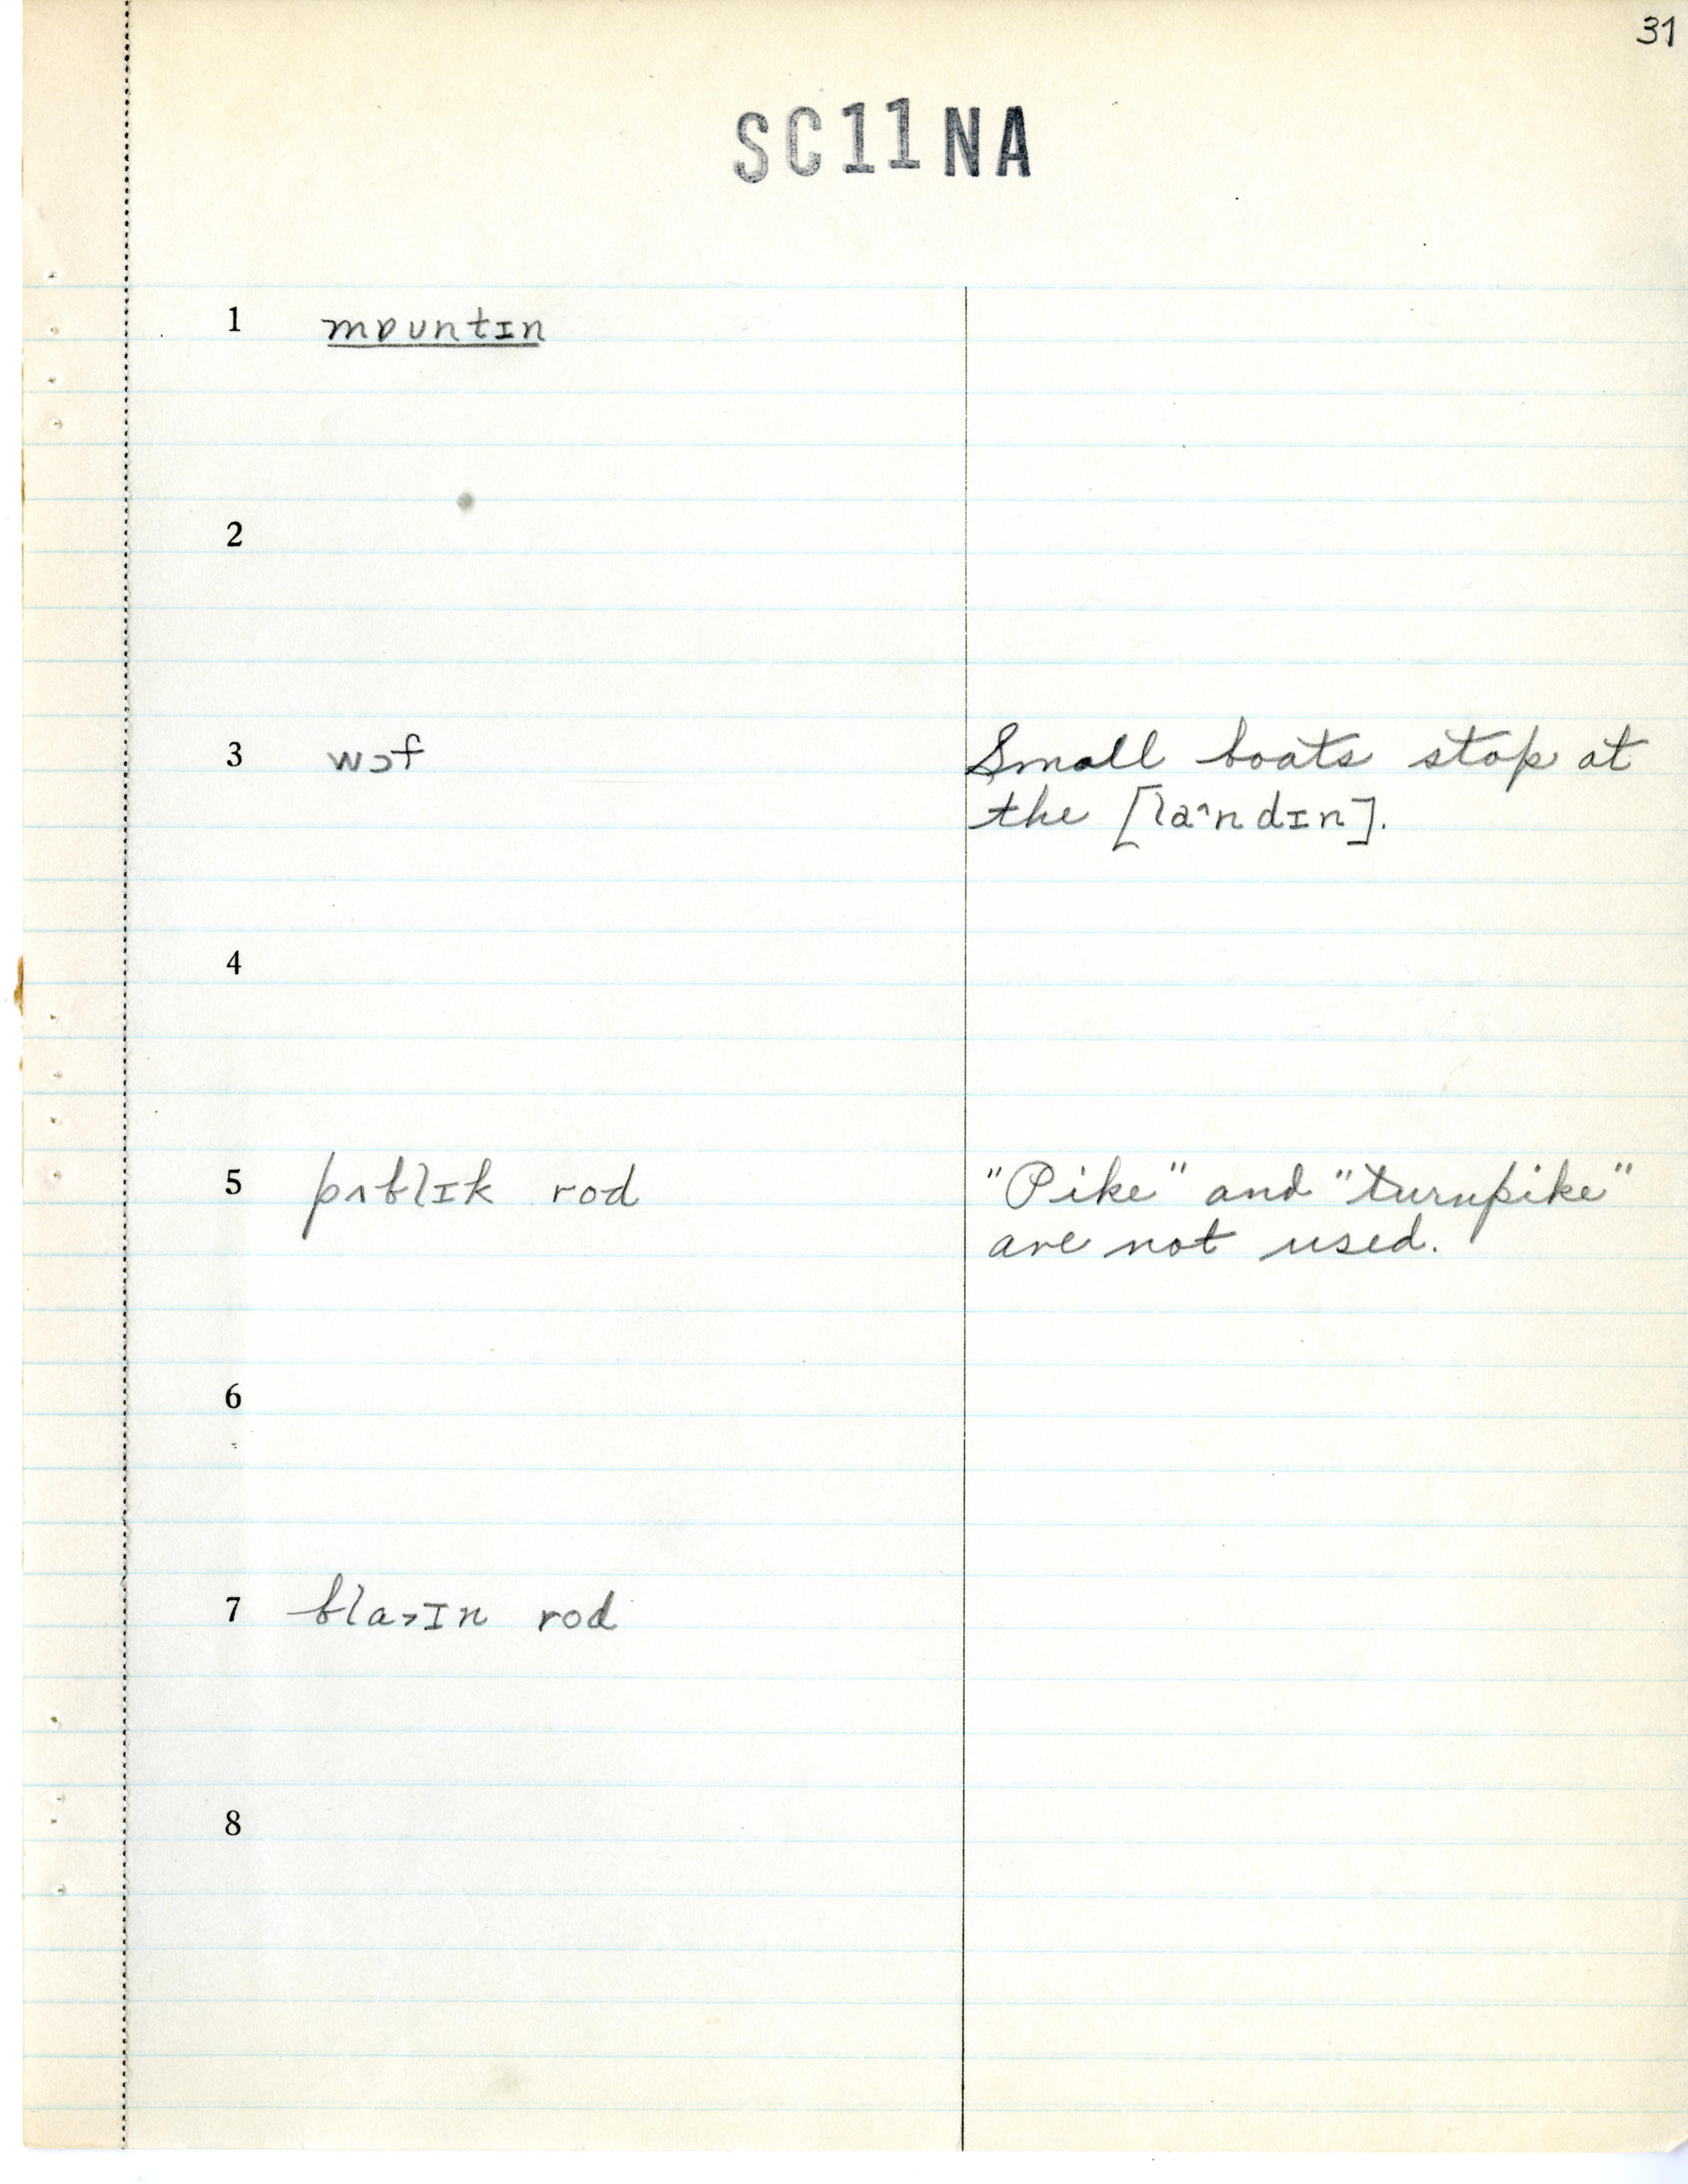 31
SC11NA
1 mɒʊntɪn
2
3 wɔf Small boats stop at
the [la^ndɪn].
4
5 pʌblɪk rod "Pike" and "turnpike"
are not used.
6
7 bla˃ɪn rod
8